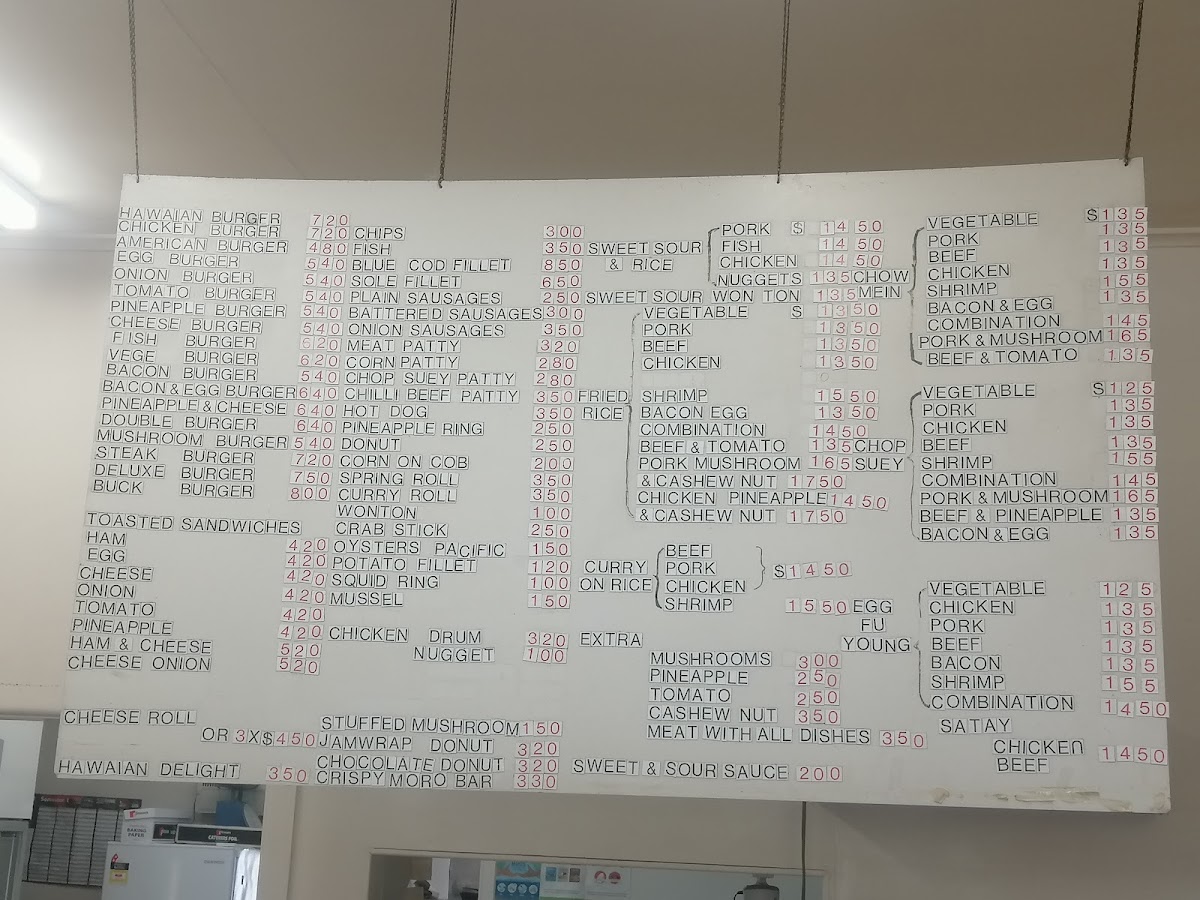 HAWAIAN BURGER 720
CHICKEN BURGER 720
AMERICAN BURGER 480
EGG BURGER 540
ONION BURGER 540
TOMATO BURGER 540
PINEAPPLE BURGER 540
CHEESE BURGER 540
FISH BURGER 620
VEGE BURGER 620
BACON BURGER 540
BACON & EGG BURGER 640
PINEAPPLE & CHEESE 640
DOUBLE BURGER 640
MUSHROOM BURGER 540
STEAK BURGER 720
DELUXE BURGER 750
BUCK BURGER 800
TOASTED SANDWICHES
HAM 420
EGG 420
CHEESE 420
ONION 420
TOMATO 420
PINEAPPLE 420
HAM & CHEESE 520
CHEESE ONION 520
CHEESE ROLL
OR 3X$450
HAWAIAN DELIGHT 350
CHIPS 300
FISH 350
BLUE COD FILLET 850
SOLE FILLET 650
PLAIN SAUSAGES 250
BATTERED SAUSAGES 300
ONION SAUSAGES 350
MEAT PATTY 320
CORN PATTY 280
CHOP SUEY PATTY 280
CHILLI BEEF PATTY 350
HOT DOG 350
PINEAPPLE RING 250
DONUT 250
CORN ON COB 200
SPRING ROLL 350
CURRY ROLL 350
WONTON 100
CRAB STICK 250
OYSTERS PACIFIC 150
POTATO FILLET 120
SQUID RING 100
MUSSEL 150
CHICKEN DRUM 320
NUGGET 100
STUFFED MUSHROOM 150
JAMWRAP DONUT 320
CHOCOLATE DONUT 320
CRISPY MORO BAR 330
SWEET SOUR
& RICE
PORK $ 1450
FISH 1450
CHICKEN 1450
NUGGETS 135
SWEET SOUR WON TON 135
FRIED
RICE
VEGETABLE $ 1350
PORK 1350
BEEF 1350
CHICKEN 1350
SHRIMP 1550
BACON EGG 1350
COMBINATION 1450
BEEF & TOMATO 135
PORK MUSHROOM 165
& CASHEW NUT 1750
CHICKEN PINEAPPLE 1450
& CASHEW NUT 1750
CURRY
ON RICE
BEEF
PORK
CHICKEN
$1450
SHRIMP 1550
EXTRA
MUSHROOMS 300
PINEAPPLE 250
TOMATO 250
CASHEW NUT 350
MEAT WITH ALL DISHES 350
SWEET & SOUR SAUCE 200
CHOW
MEIN
VEGETABLE $135
PORK 135
BEEF 135
CHICKEN 135
SHRIMP 155
BACON & EGG 135
COMBINATION 145
PORK & MUSHROOM 165
BEEF & TOMATO 135
CHOP
SUEY
VEGETABLE $125
PORK 135
CHICKEN 135
BEEF 135
SHRIMP 155
COMBINATION 145
PORK & MUSHROOM 165
BEEF & PINEAPPLE 135
BACON & EGG 135
EGG
FU
YOUNG
VEGETABLE 125
CHICKEN 135
PORK 135
BEEF 135
BACON 135
SHRIMP 155
COMBINATION 1450
SATAY
CHICKEN
BEEF
1450
BAKING
PAPER
CATERERS FOIL